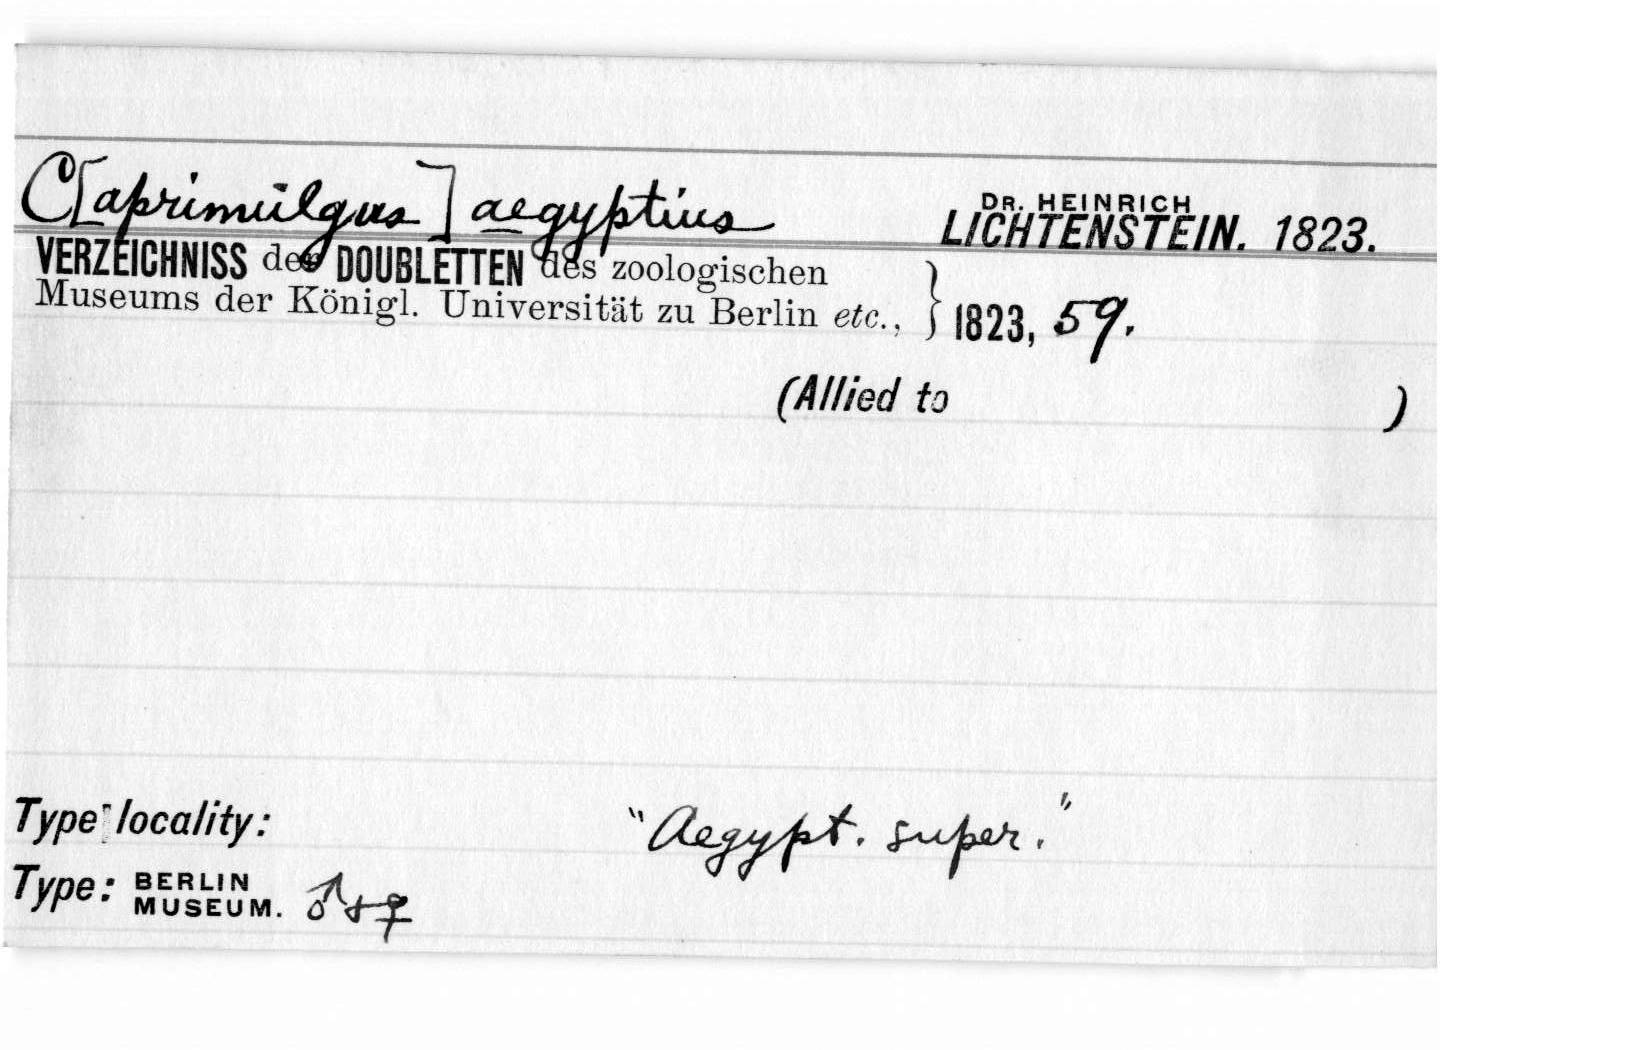 C[aprimulgus] aegyptius
DR. HEINRICH
LICHTENSTEIN. 1823.
VERZEICHNISS der DOUBLETTEN des zoologischen
Museums der Königl. Universität zu Berlin etc., } 1823, 59.
(Allied to )
Type locality: "Aegypt. super."
Type: BERLIN MUSEUM. ♂ & ♀